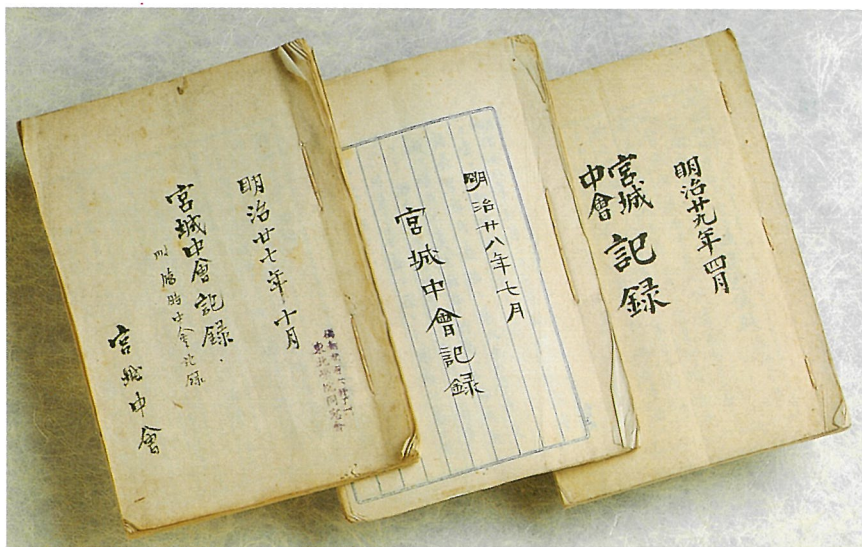 明治廿七年十月
宮城中會記録
臨時中會記録
宮城中會
明治廿八年七月
宮城中會記録
明治廿九年四月
宮城中會記録